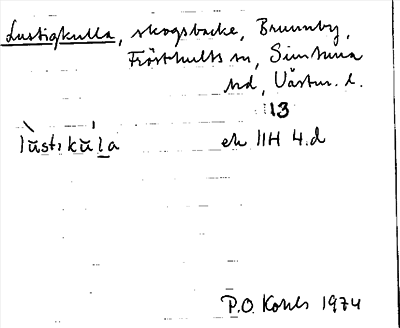 Lustigkulla, skogsbacke, Brunnby,
Frösthults sn, Simtuna
hd, Västm. l.
13
lùstikúḷa ek IIH 4.d
P.O. Kohls 1974